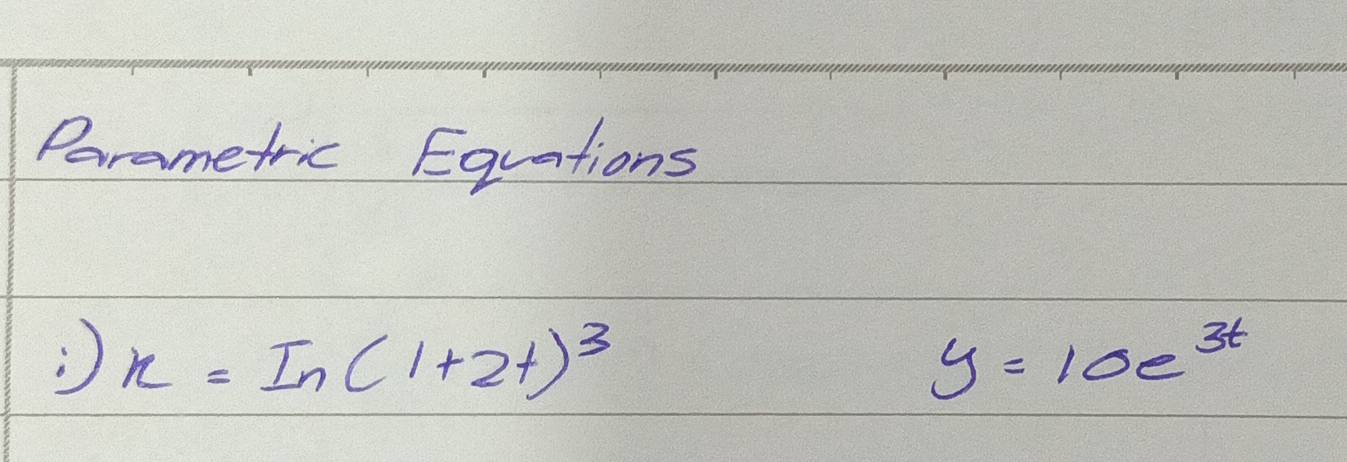 Parametric Equations
i) x = In(1+2t)³ y = 10e³ᵗ